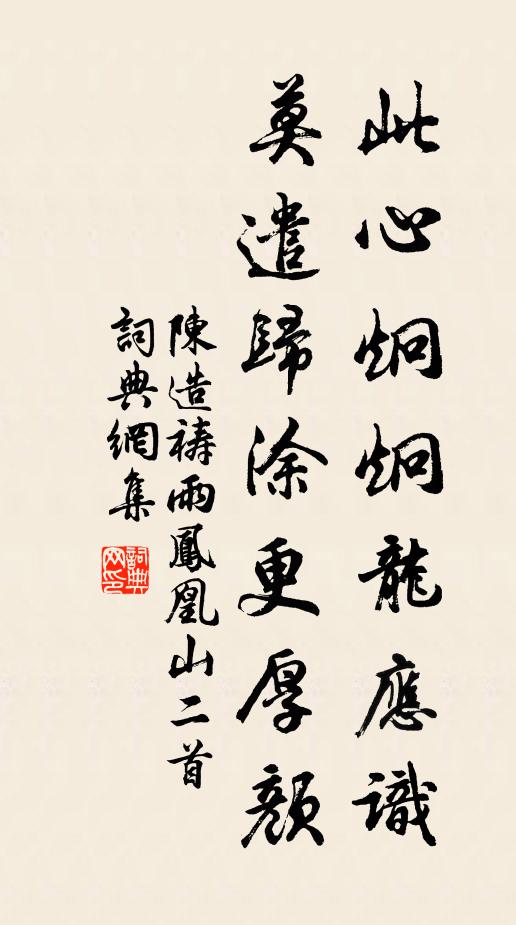 此心炯炯龍應識
莫遣歸涂更厚顏
陳造禱雨鳳凰山二首
詞典網集
詞典网印